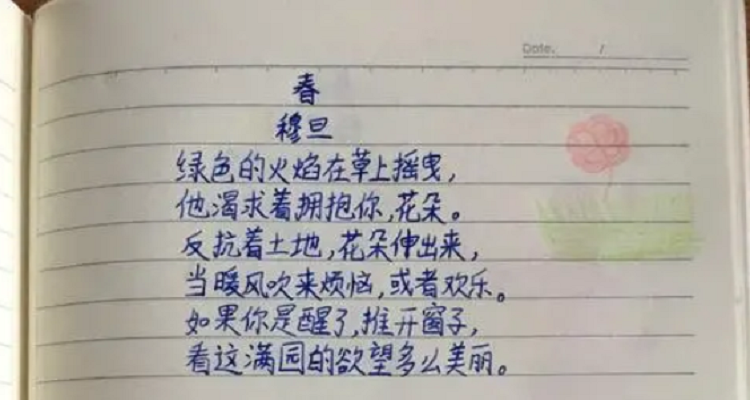 Date. /
春
穆旦
绿色的火焰在草上摇曳，
他渴求着拥抱你，花朵。
反抗着土地，花朵伸出来，
当暖风吹来烦恼，或者欢乐。
如果你是醒了，推开窗子，
看这满园的欲望多么美丽。